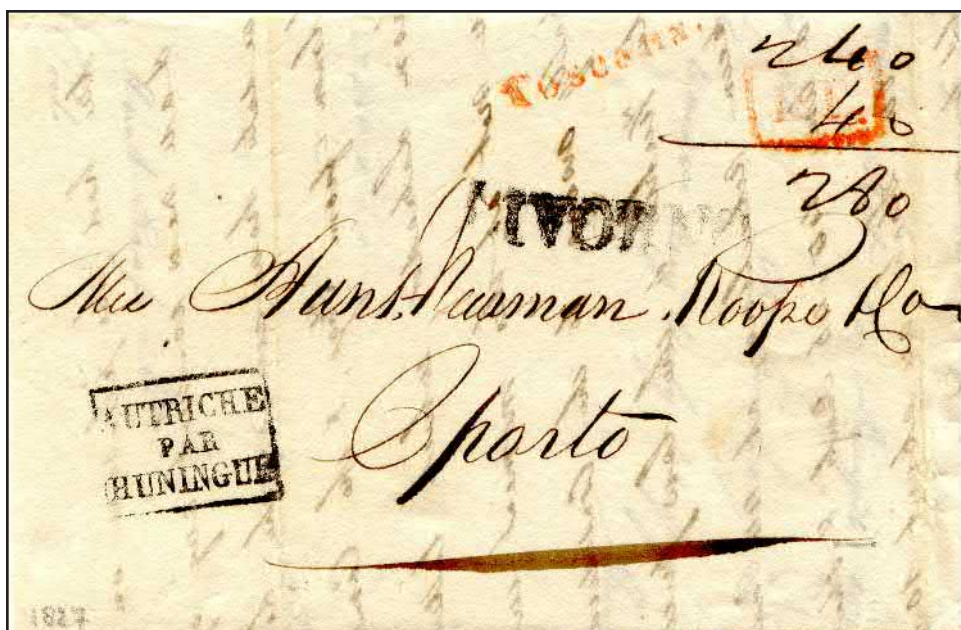 Toscana.
240
40
280
LIVORNO
Hunt Newman Roope & Co
Oporto
AUTRICHE
PAR
HUNINGUE
1827